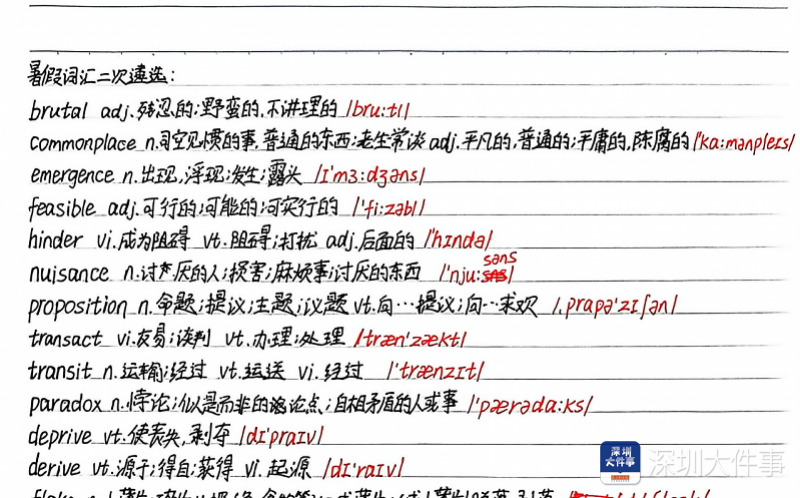 暑假词汇二次遴选:
brutal adj.残忍的;野蛮的,不讲理的 /bru:tl/
commonplace n.司空见惯的事,普通的东西;老生常谈 adj.平凡的,普通的;平庸的,陈腐的 /'kɑ:mənpleɪs/
emergence n.出现,浮现;发生;露头 /ɪ'mɜ:dʒəns/
feasible adj.可行的;可能的;可实行的 /'fi:zəbl/
hinder vi.成为阻碍 vt.阻碍;打扰 adj.后面的 /'hɪndə/
nuisance n.讨厌的人;损害;麻烦事;讨厌的东西 /'nju:səns/
proposition n.命题;提议;主题;议题 vt.向…提议;向…求欢 /,prɑpə'zɪʃən/
transact vi.交易;谈判 vt.办理;处理 /træn'zækt/
transit n.运输;经过 vt.运送 vi.经过 /'trænzɪt/
paradox n.悖论;似是而非的论点;自相矛盾的人或事 /'pærədɑ:ks/
deprive vt.使丧失,剥夺 /dɪ'praɪv/
derive vt.源于;得自;获得 vi.起源 /dɪ'raɪv/
深圳大件事
深圳大件事